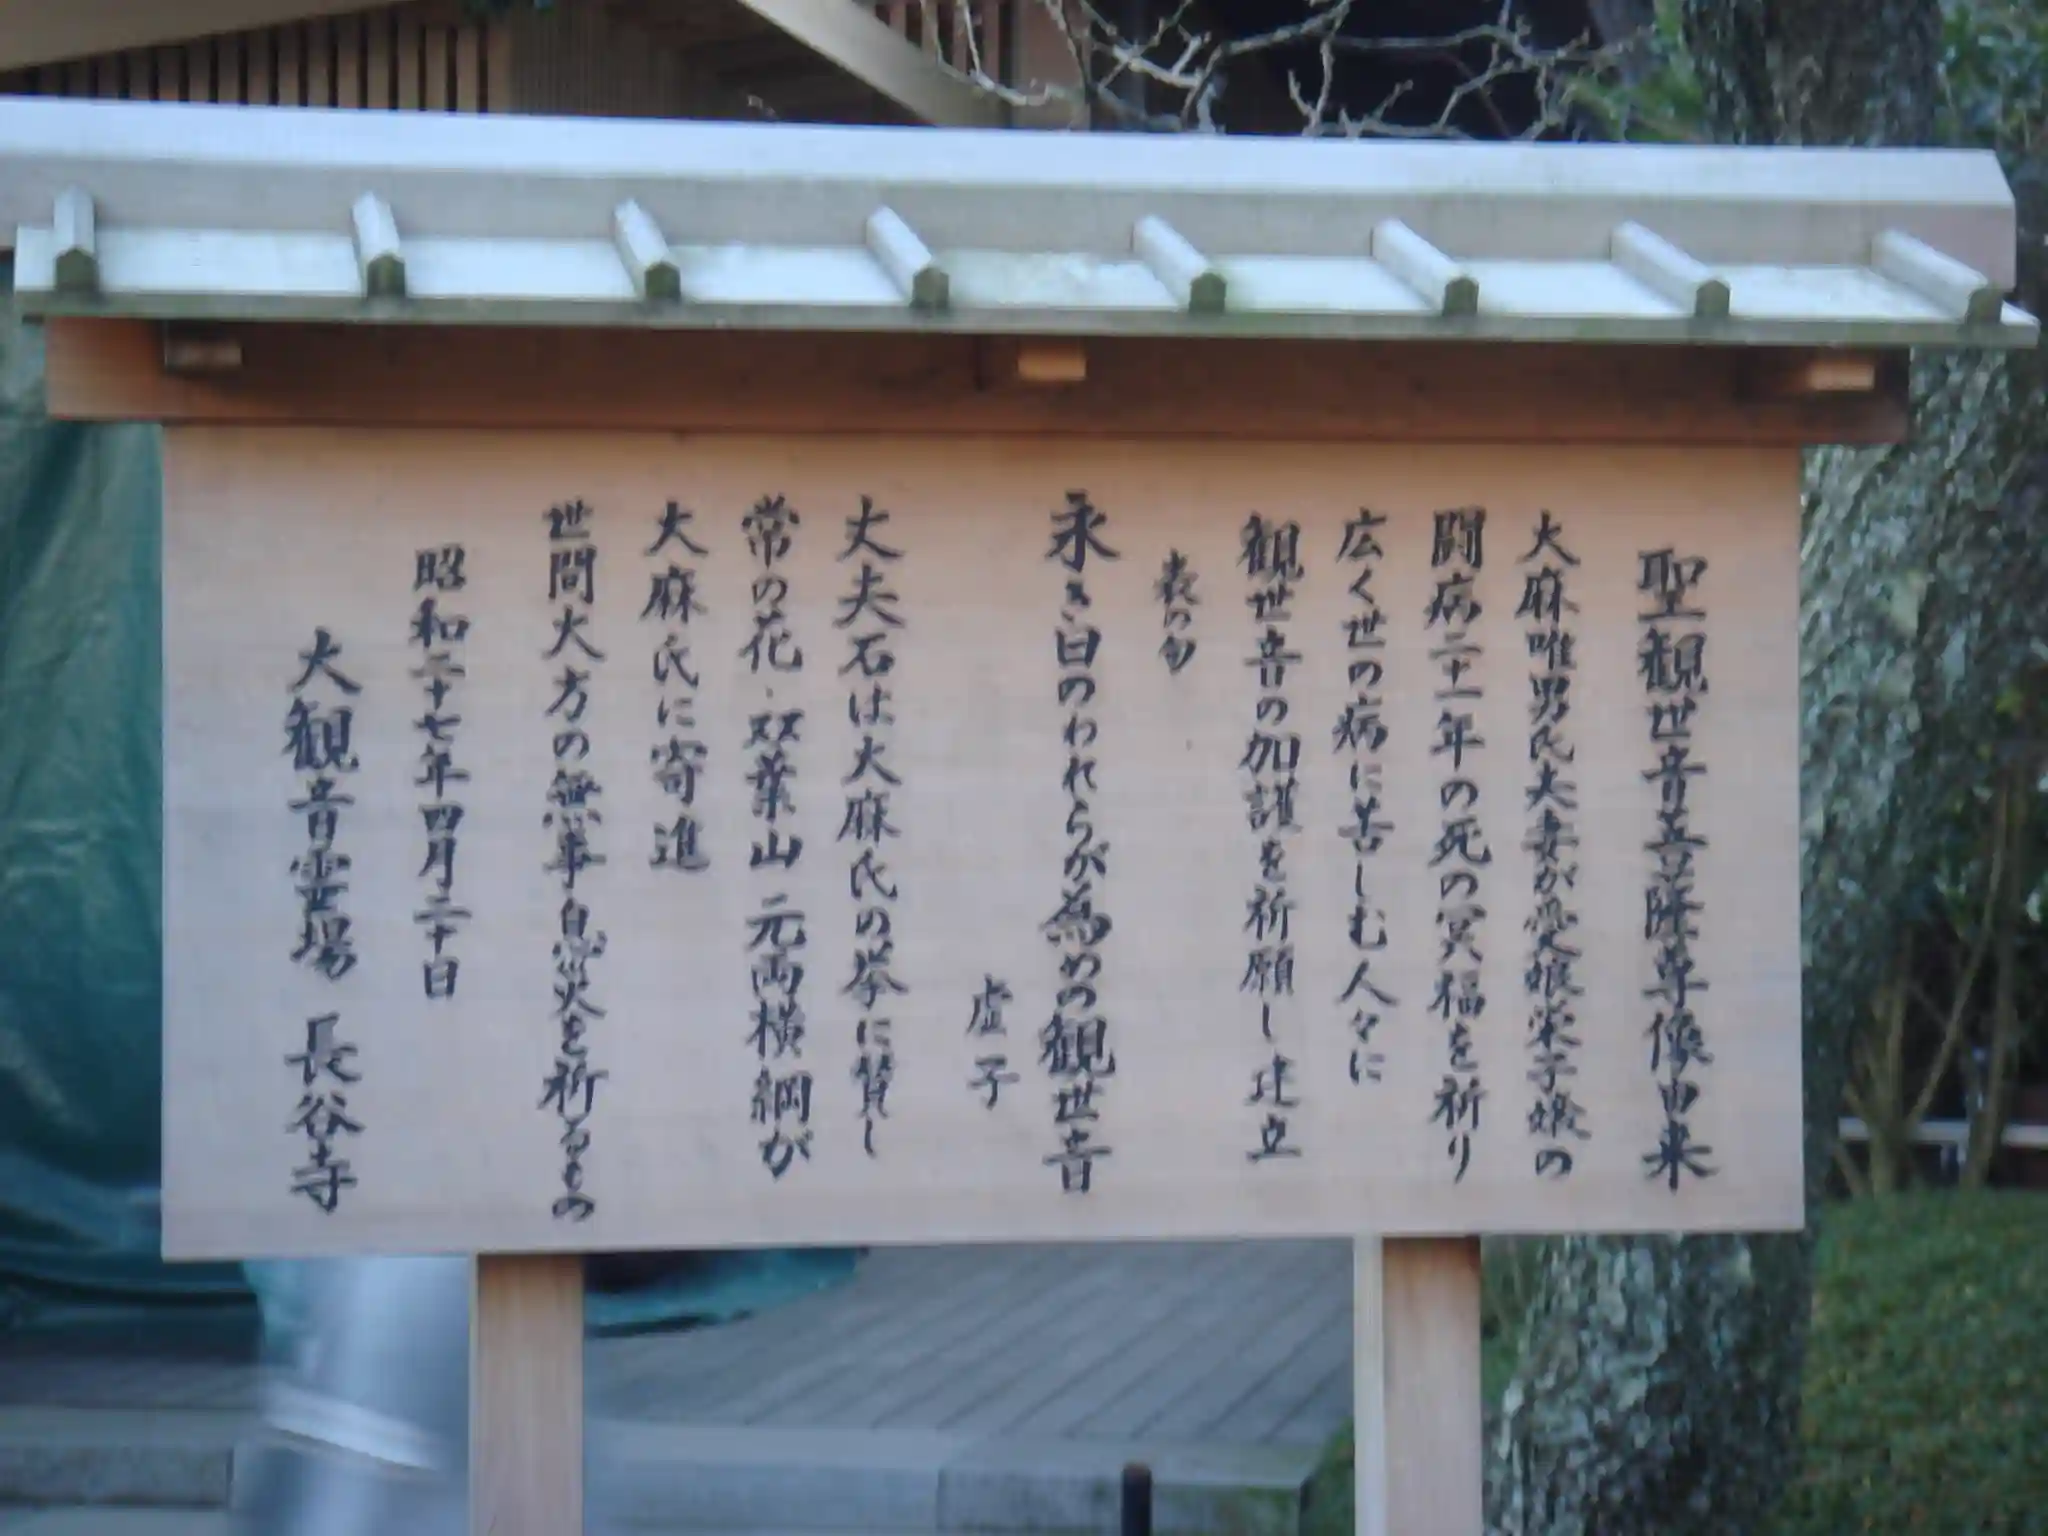 聖観世音菩薩尊像由来
大麻唯男氏夫妻が愛娘栄子嬢の
闘病二十一年の死の冥福を祈り
広く世の病に苦しむ人々に
観世音の加護を祈願し建立
表の句
永き日のわれらが為めの観世音
虚子
丈夫石は大麻氏の挙に賛し
常の花、双葉山元両横綱が
大麻氏に寄進
世間大方の無事息災を祈るもの
昭和二十七年四月二十日
大観音霊場 長谷寺